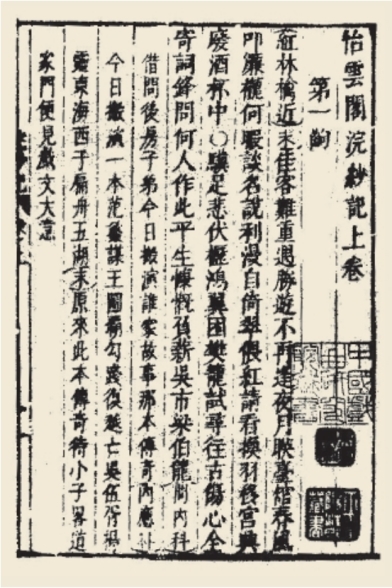 怡雲閣浣紗記上卷
第一齣
紅林檎近末佳客難重遇勝遊不再逢夜月映臺館春風
叩簾櫳何暇談名說利漫自倚翠偎紅請看換羽移宮興
廢酒杯中〇驥足悲伏櫪鴻翼困樊籠試尋往古傷心全
寄詞鋒問何人作此平生慷慨負薪吳市梁伯龍問內科
借問後房子弟今日搬演誰家故事那本傳奇內應科
今日搬演一本范蠡謀王圖霸勾踐復越亡吳伍胥揚
靈東海西子扁舟五湖末原來此本傳奇待小子畧道
家門便見戲文大意